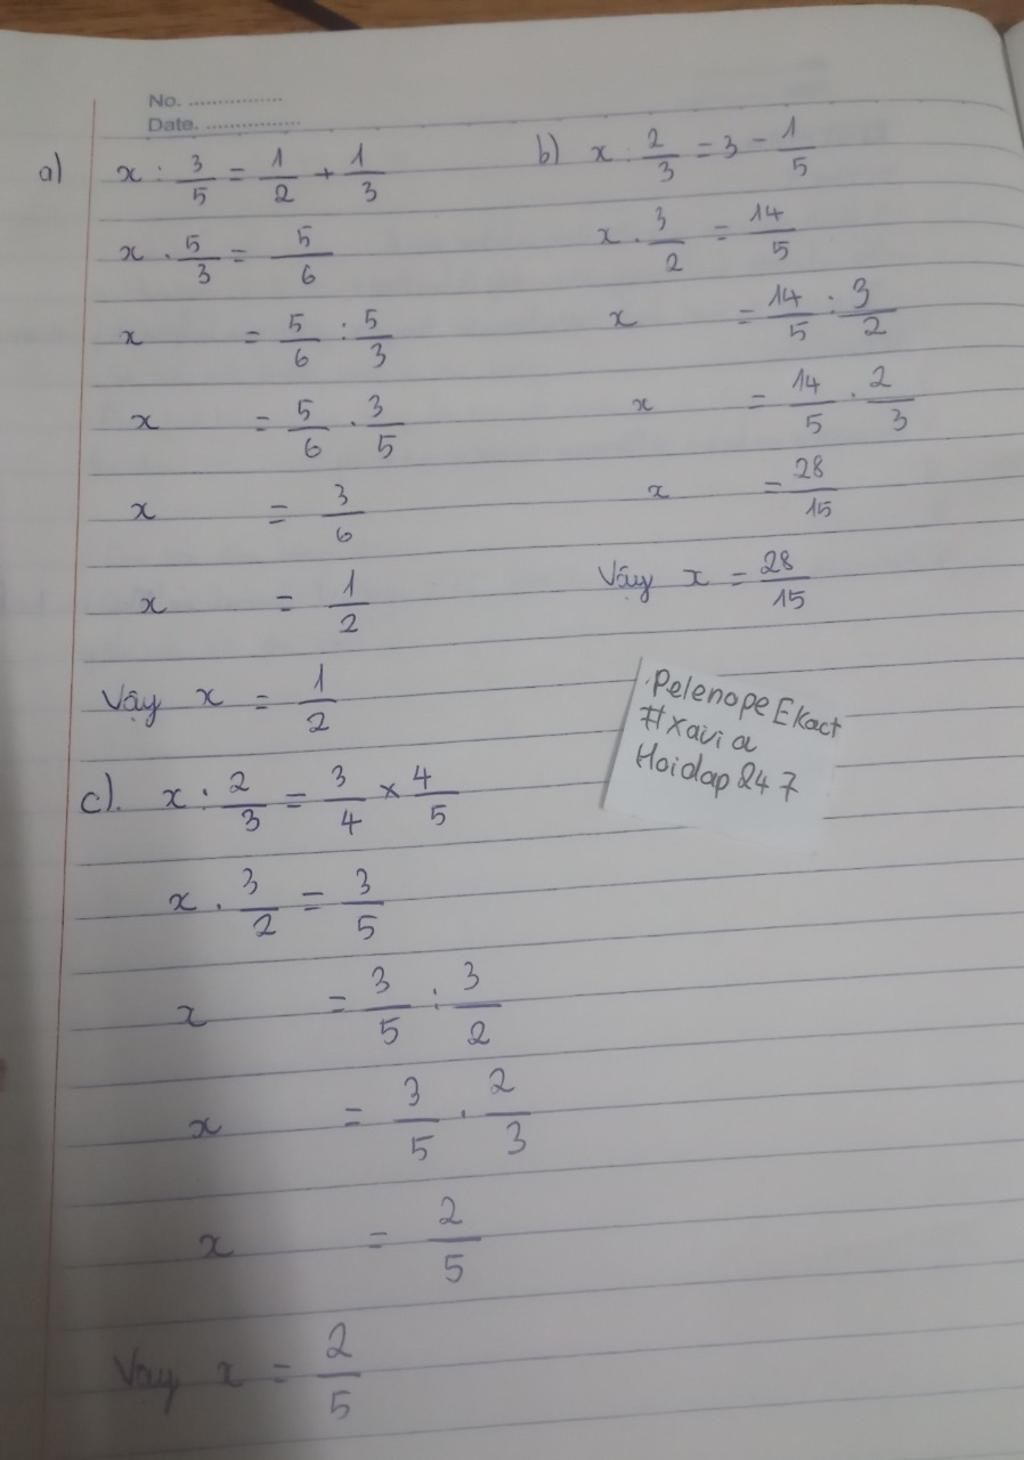 No. ................
Date. ................
a) x : 3/5 = 1/2 + 1/3
x . 5/3 = 5/6
x = 5/6 : 5/3
x = 5/6 . 3/5
x = 3/6
x = 1/2
Vậy x = 1/2
b) x : 2/3 = 3 - 1/5
x . 3/2 = 14/5
x = 14/5 : 3/2
x = 14/5 . 2/3
x = 28/15
Vậy x = 28/15
Pelenope Ekact
#xavia
Hoidap247
c). x : 2/3 = 3/4 × 4/5
x . 3/2 = 3/5
x = 3/5 : 3/2
x = 3/5 . 2/3
x = 2/5
Vay x = 2/5